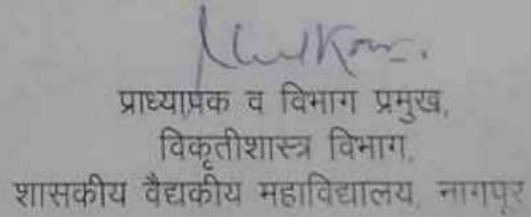 प्राध्यापक व विभाग प्रमुख,
विकृतीशास्त्र विभाग,
शासकीय वैद्यकीय महाविद्यालय, नागपूर